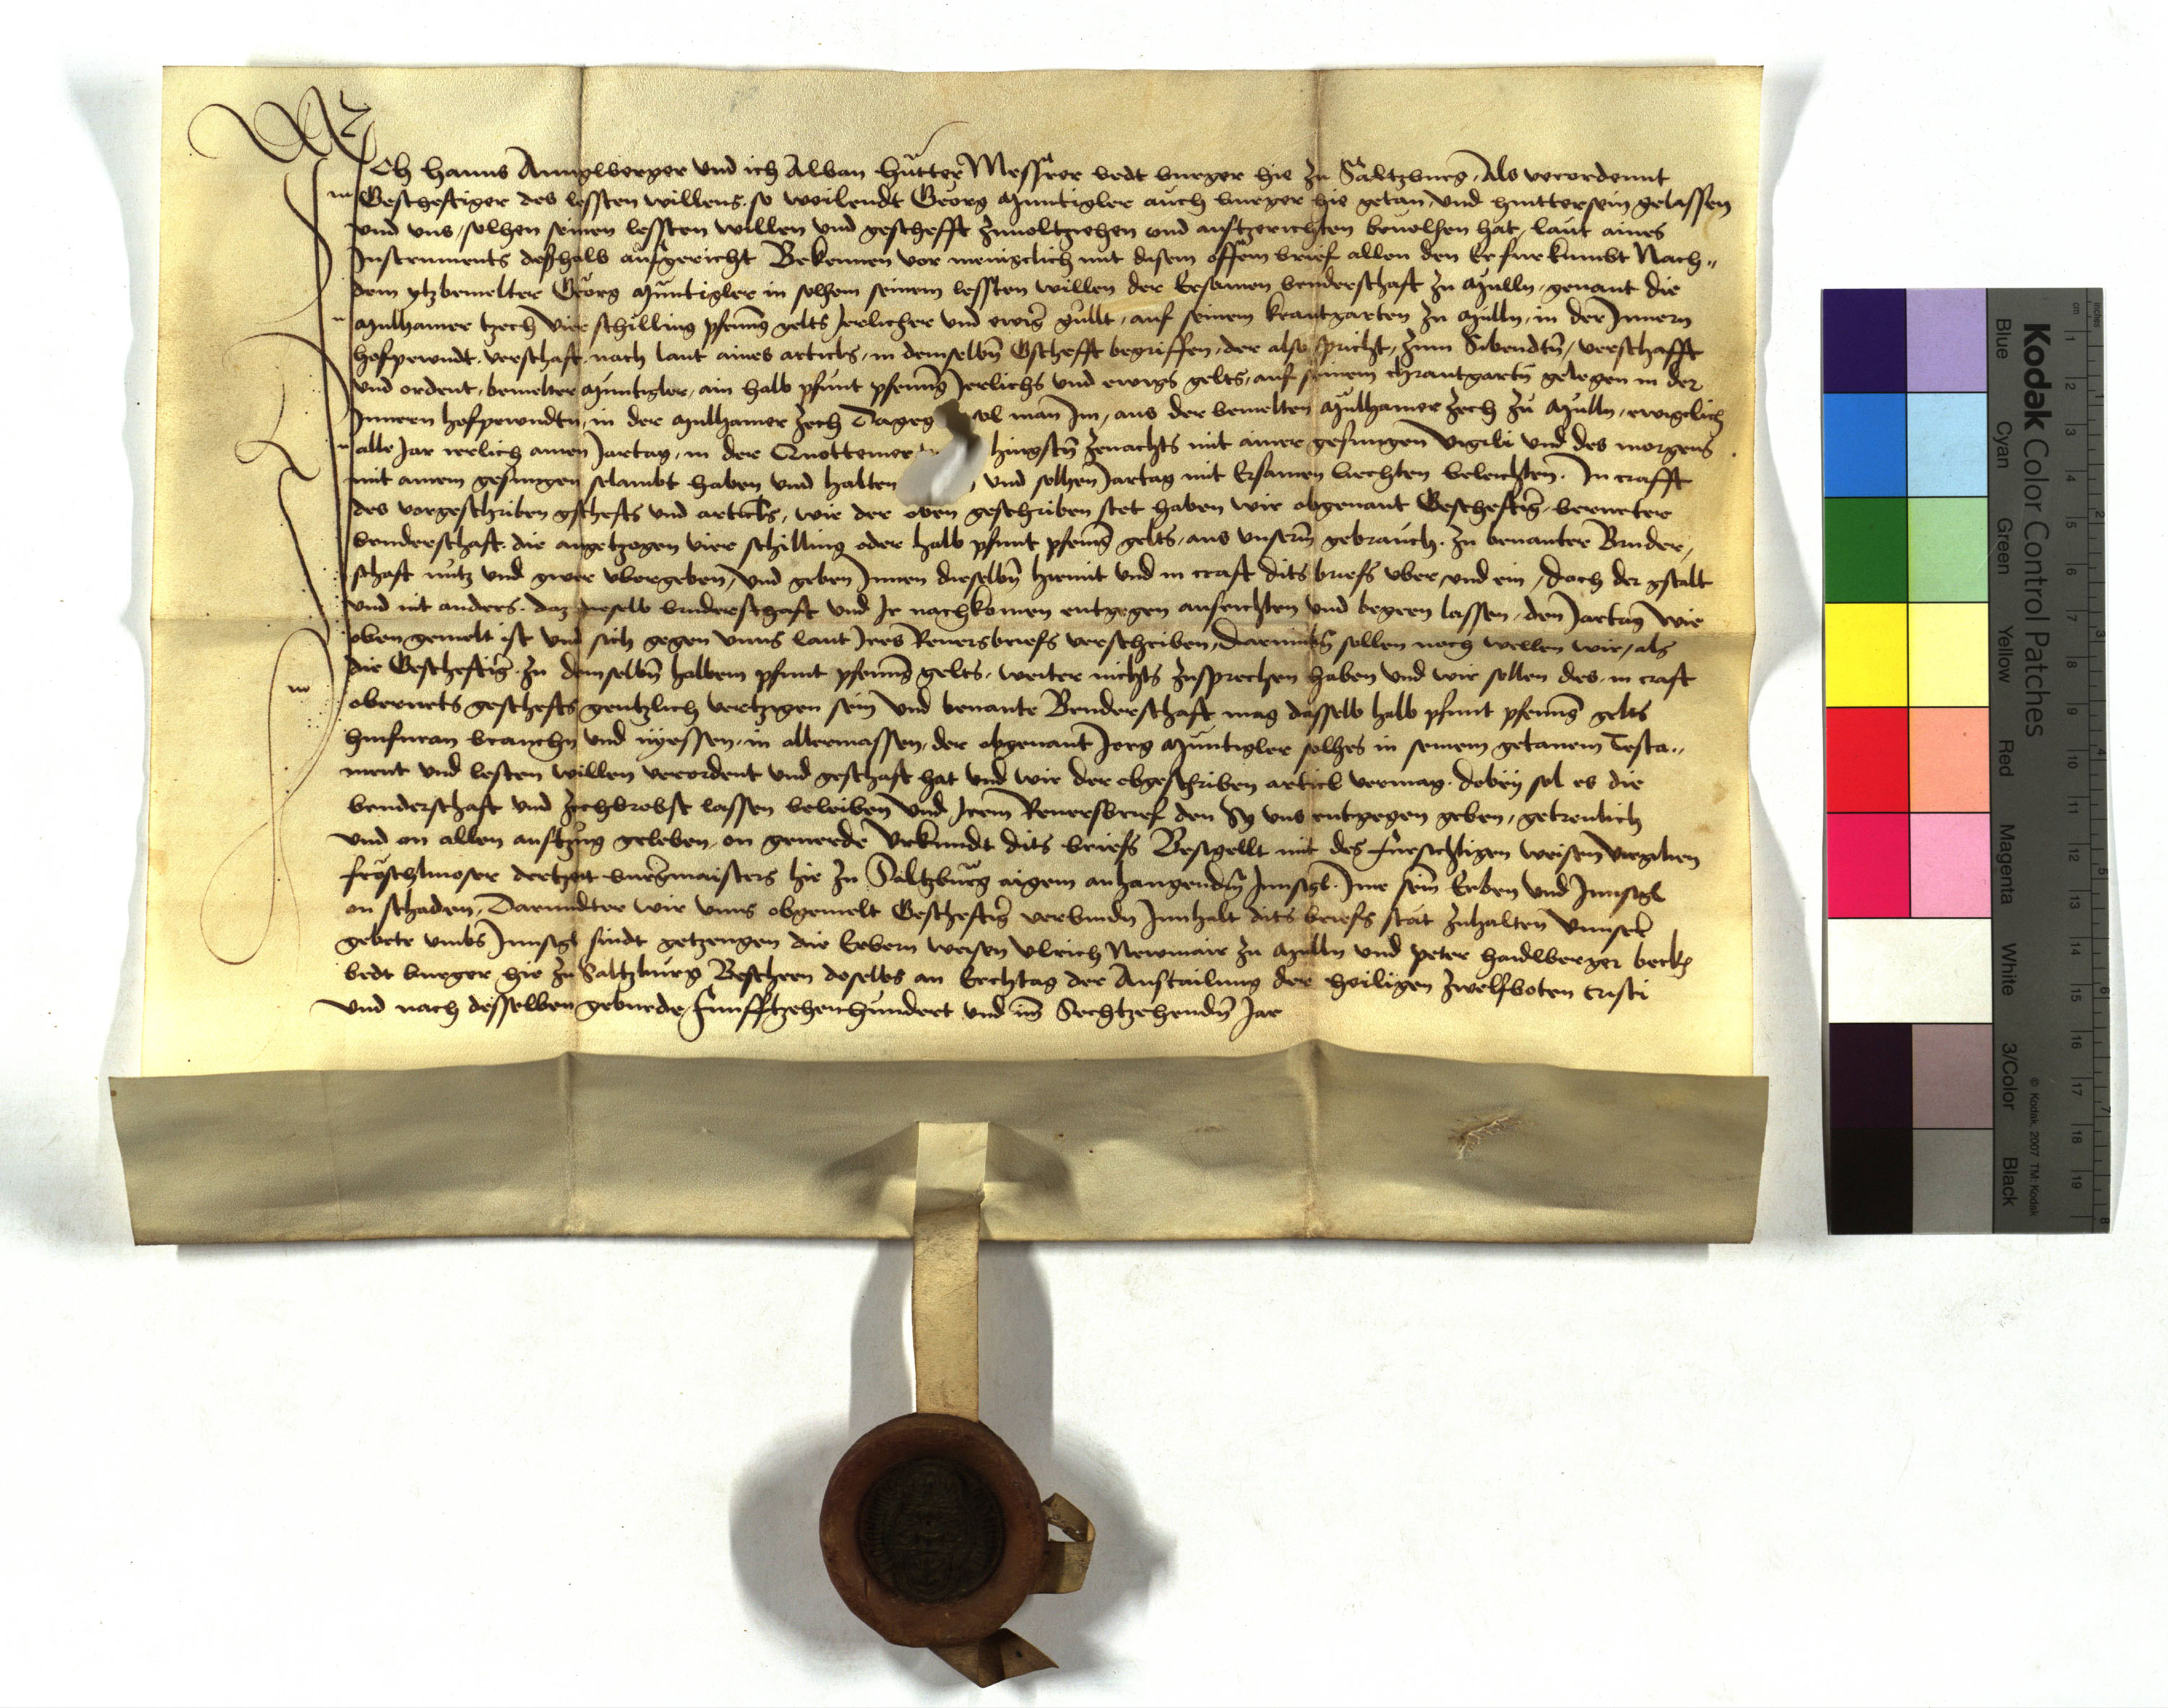 Ich Hanns Anuglberger und ich Alban Hutter Messrer bedt burger hie zu Saltzburg, Als verordennt
Gescheftiger des lessten willens, so weilendt Georg Muntigler auch burger hie getan und hinttersein gelassen
und uns, solhen seinen lessten willen und geschefft zuuoltziehen und austzerichten beuolhen hat, laut aines
Instruments deshalb aufgericht Bekennen vor menigclich mit disem offem brief allen den Er furkumbt Nach-
dem ytzbemelter Georg Muntigler in solhem seinem lessten willen der Ersamen bruderschaft zu Mulln, genant die
Mulhamer tzech vier schilling pfenng gelts Jerlicher und ewig gullt, auf seinem krautgarten zu Mulln, in der Innern
hofpewndt, verschaft, nach laut aines articls, in demselbn Gschefft begriffen, der also spricht, zum Sibendtn, verschafft
und ordent, bemelter Muntigler, ain halb pfunt pfenng Jerlichs und ewigs gelts, auf seinem chrautgartn gelegen in der
Innern hofpewndtn, in der Mulhamer zech Dageg sol man Im, aus der bemelten Mulhamer zech zu Mulln, ewigclich
alle Jar ierlich ainen Jartag, in der Quottemer hingstn zenachts mit ainer gesungen vigili und des morgens
mit ainem gesungen selambt haben und halten und solhen Jartag mit Ersamen liechten beleichten. In crafft
des vorgeschriben gschefts und articls, wie der oben geschriben stet haben wir obgenant Gescheftig, berurter
bruderschaft, die angetzogen vier schilling oder halb pfunt pfenng gelts, aus unserm gebrauch, zu benanter Bruder,
schaft nutz und gwer ubergeben, und geben Innen dieselbn hiemit und in craft dits briefs uber und ein, doch der gstalt
und nit anders, daz dieselb bruderschaft und Ir nachkomen entgegen ausrichten und begeen lassen, den Jartag wie
oben gemelt ist und sich gegen unns laut Ires Reuersbriefs verschreiben, Darumbn sollen noch wellen wir, als
die Gescheftig, zu demselbn halbem pfunt pfenng gelts, weiter nichts zusprechen haben und wir sollen des, in craft
oberurts geschefts gentzlich vertzigen sein und benante Bruderschaft mag dasselb halb pfunt pfenng gelts
hinfuran brauchn und nyessen, in allermassen, der obgenant Jorg Muntigler solhes in seinem getanem Testa-
ment und lesten willen verordent und geschaft hat und wie der obgeschriben articl vermag, dobey sol es die
bruderschaft und zechbrobst lassen beleiben und Irem Reuersbrief den Sy uns entgegen geben, getreulich
und on allen austzug geleben, on geuerde Urkundt dits briefs Besigellt mit des fursichtigen weisen Virgilien
Fröschlmoser dertzeit burgermaisters hie zu Saltzburg aigem anhangendm Innsigl, Ime sein Erben und Innsigl
on schaden, Darundter wir unns obgemelt Gescheftig verbindn Innhalt dits briefs stät zuhalten Unnser
gebete umbs Innsigl sindt getzeugen die Erbern weisen Ulrich Newmair zu Mulln und Peter Haidlberger beckh
bedt burger hie zu Saltzburg Bescheen doselbs an Erchtag der Austailung der heiligen zwelfboten Cristi
und nach desselben geburde, Funfftzehenhundert und im Sechtzehendn Jar
Kodak Color Control Patches
Blue Cyan Green Yellow Red Magenta White 3/Color Black
© Kodak, 2007 TM: Kodak
cm 1 2 3 4 5 6 7 8 9 10 11 12 13 14 15 16 17 18 19
inches 1 2 3 4 5 6 7 8